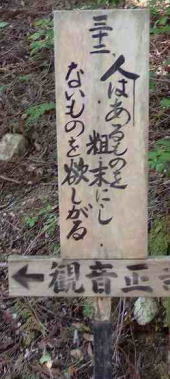 三十二
人はあるものを
粗末にし
ないものを欲しがる
←観音正寺